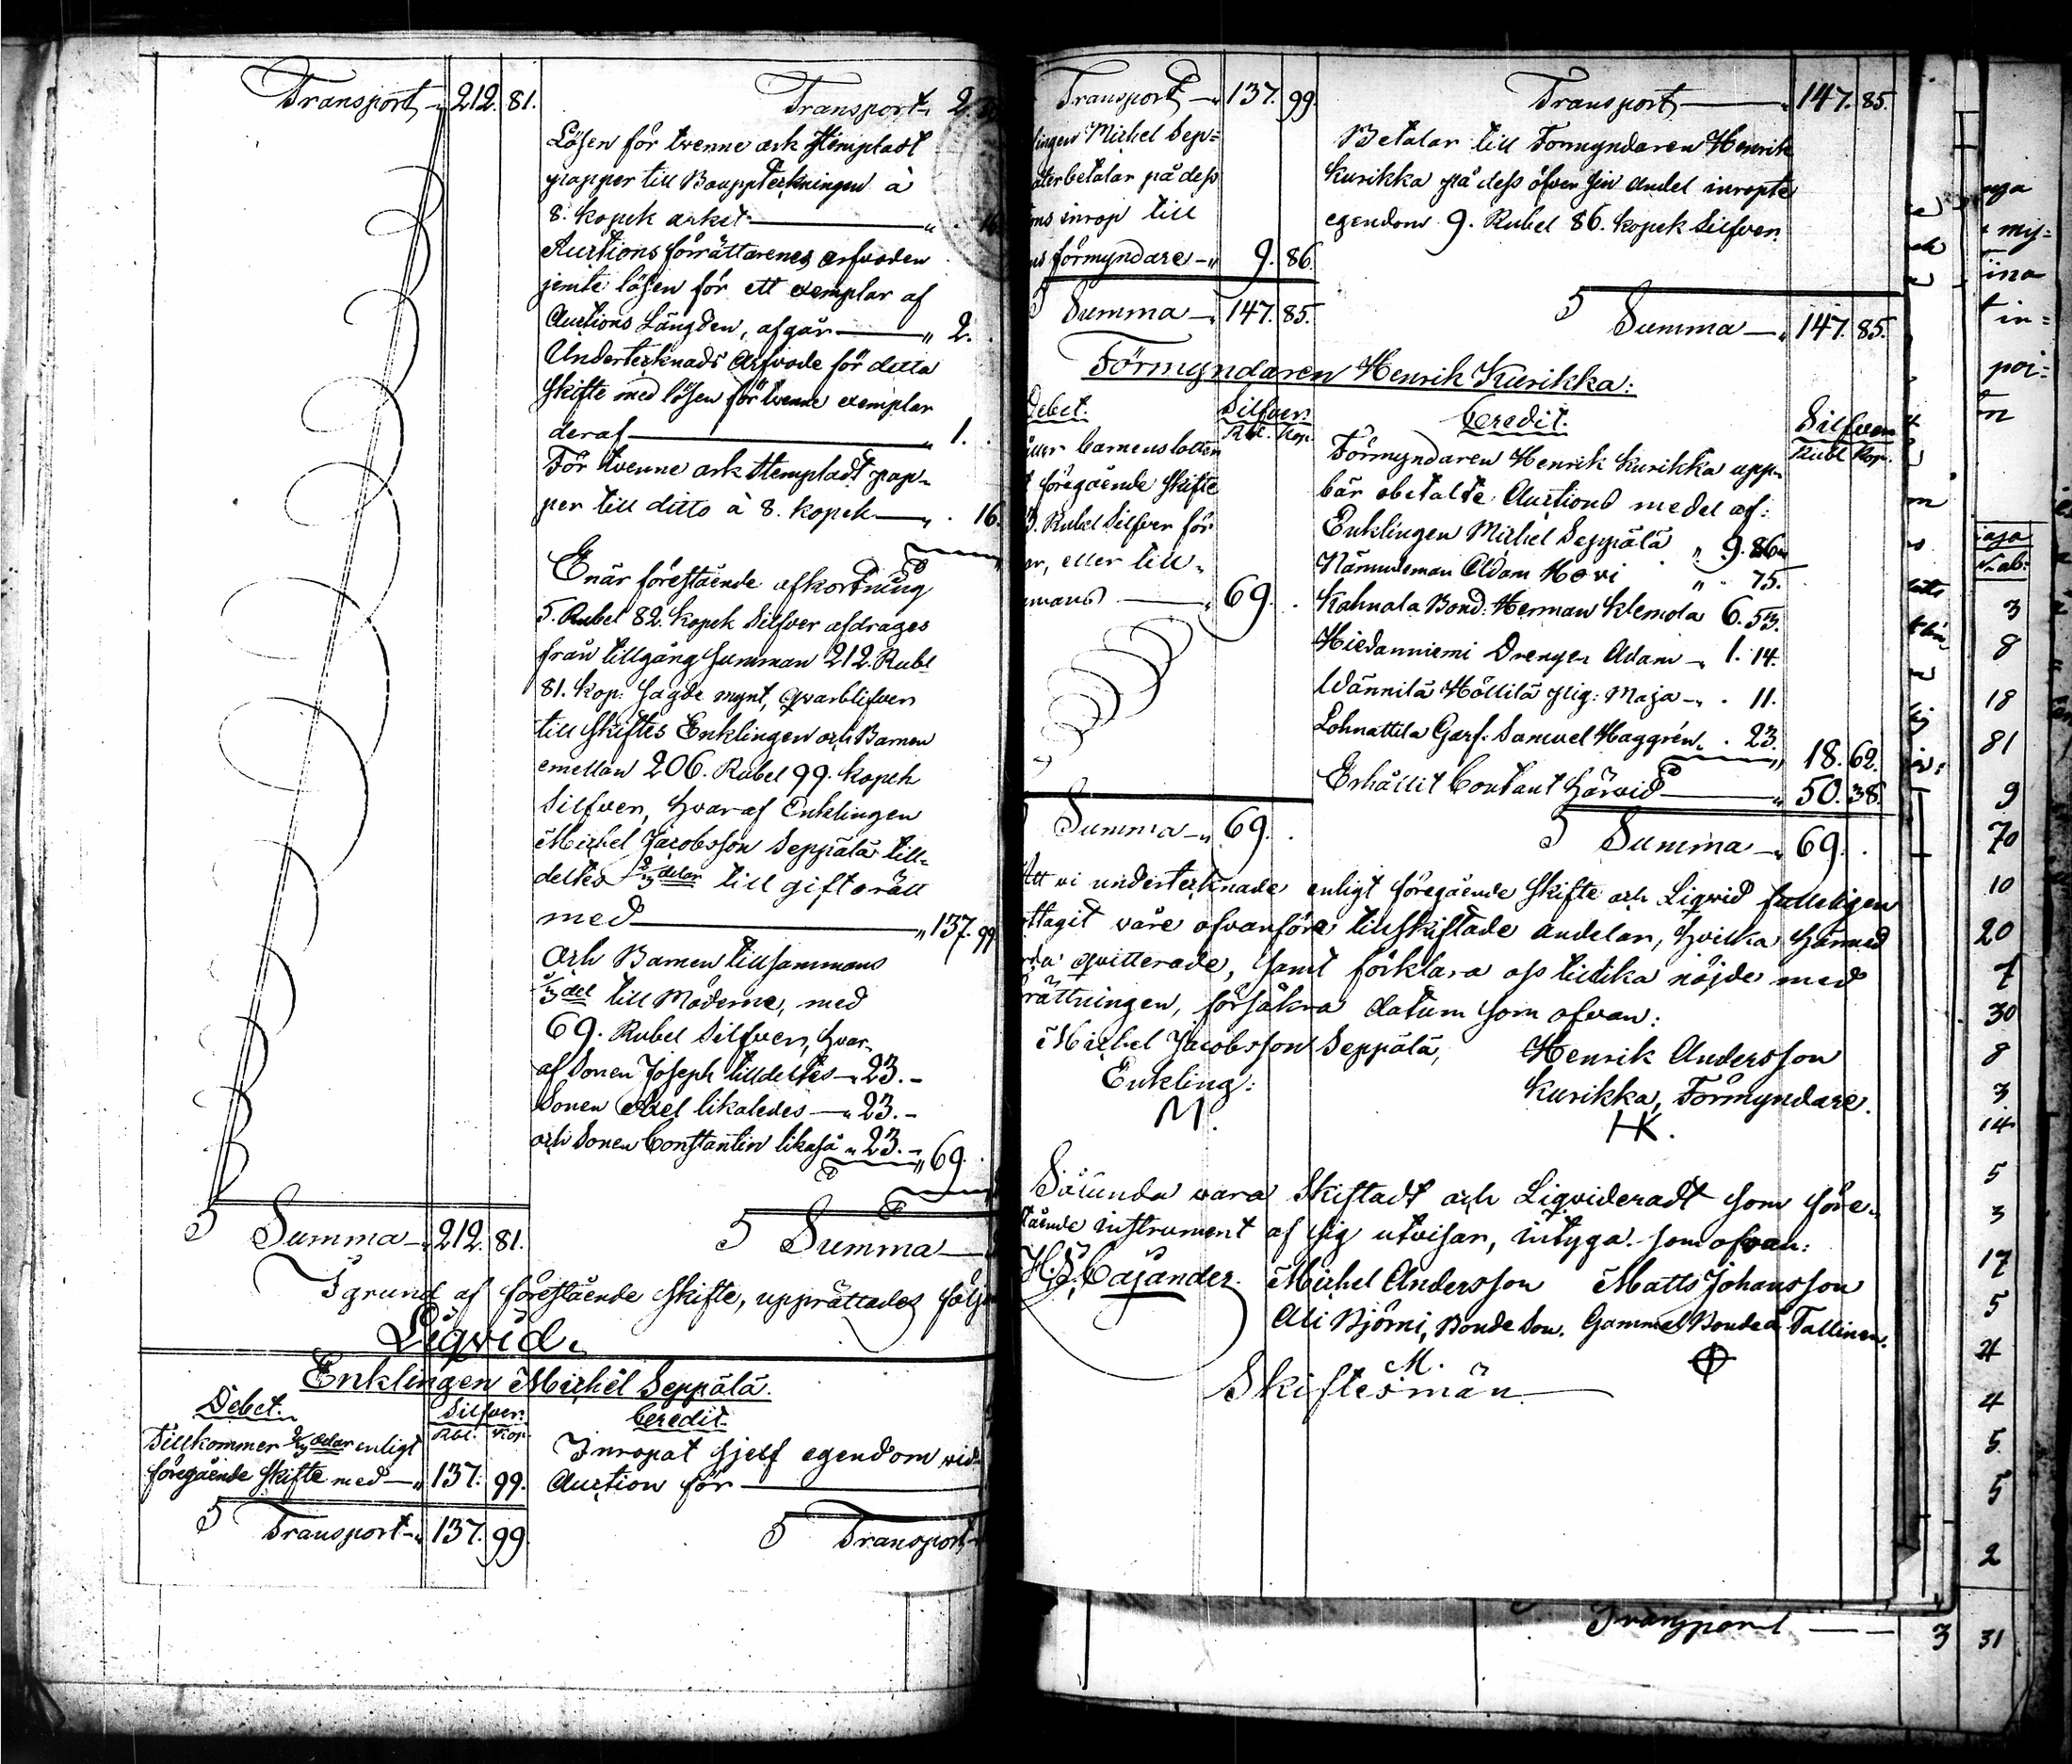 Transport — 212. 81.
Transport „ 2.
Lösen för tvenne ark Stempladt
papper till Bouppteckningen à
8. kopek arket — „ . 16
Auctions förrättarenes arfvoden
jemte lösen för ett exemplar af
Auctions Längden, afgår — „ 2.
Undertecknads Arfvode för detta
skifte med lösen för tvenne exemplar
deraf — „ 1.
För tvenne ark Stempladt pap-
per till ditto à 8. kopek — „ . 16.
Enär förestående afkortning
5. Rubel 82. kopek Silfver afdrages
från tillgång summan 212. Rubl
81. kop: sagde mynt, qvarblifver
till skiftes Enklingen och Barnen
emellan 206. Rubel 99. kopek
Silfver, hvaraf Enklingen
Michel Jacobsson Seppälä till-
deltes 2/3 delar till giftorätt
med — „ 137. 99
och Barnen tillsammans
1/3 del till Möderne, med
69. Rubel Silfver, hvar-
af Sonen Joseph tilldeltes — „ 23. –
Sonen Axel likaledes — „ 23. –
och Sonen Constantin likaså „ 23. – „ 69.
Summa — 212. 81.
Summa —
I grund af förestående skifte, upprättades följ
Liqvid.
Enklingen Michel Seppälä.
Debet. Silfver. Credit.
Rbl. Kop.
Tillkommer 2/3 delar enligt
föregående skifte med — „ 137. 99.
Inropat sjelf egendom vid
Auction för —
Transport „ 137. 99
Transport
Transport — „ 137. 99
lingen Michel Sep=
återbetalar på dess
ons inrop till
förmyndare — „ 9. 86.
Summa — 147. 85.
Transport — „ 147. 85.
Betalar till Förmyndaren Henrik
Kurikka på dess öfver sin andel inropte
egendom 9. Rubel 86. kopek Silfver.
Summa — „ 147. 85.
Förmyndaren Henrik Kurikka:
Debet. Silfver. Credit. Silfver
Rbl. Kop. Rubl Kop.
barnens lotter
föregående skifte
3. Rubel Silfver för
er, eller till-
mans — „ 69.
Förmyndaren Henrik Kurikka upp-
bär obetalte Auctions medel af:
Enklingen Michel Seppälä „ 9. 86
Nämndeman Adam Hovi „ . 75.
Kahnala Bond. Herman Klemola 6. 53.
Hiedanniemi Drengen Adam „ 1. 14.
Wännilä Höllilä pig: Maja — „ . 11.
Lohnattila Garf. Samuel Haggrén „ . 23. „ 18. 62.
Erhållit Contant härvid — „ 50. 38.
Summa — „ 69.
Summa — „ 69.
Att vi undertecknade enligt föregående skifte och Liqvid fulleligen
ottagit våre ofvanföre tillskiftade andelar, hvilka härmed
qvitterade, samt förklara oss tillika nöjde med
rättningen, försäkra datum som ofvan:
Michel Jacobsson Seppälä, Henrik Andersson
Enkling: Kurikka, Förmyndare.
M. HK.
Sålunda vara skiftadt och Liqvideradt som före-
tående instrument af sig utvisar, intyga som ofvan:
Cajander. Michel Andersson Matts Johansson
Ali Björni, Bonde Son. Gammel Bonde å Tallinen.
M.
Skiftesmän
nga
my=
ina
in=
poi=
3
8
18
81
9
70
10
20
7
30
8
3
14
5
3
17
5
4
4
5.
5
2
Transport — 3 31